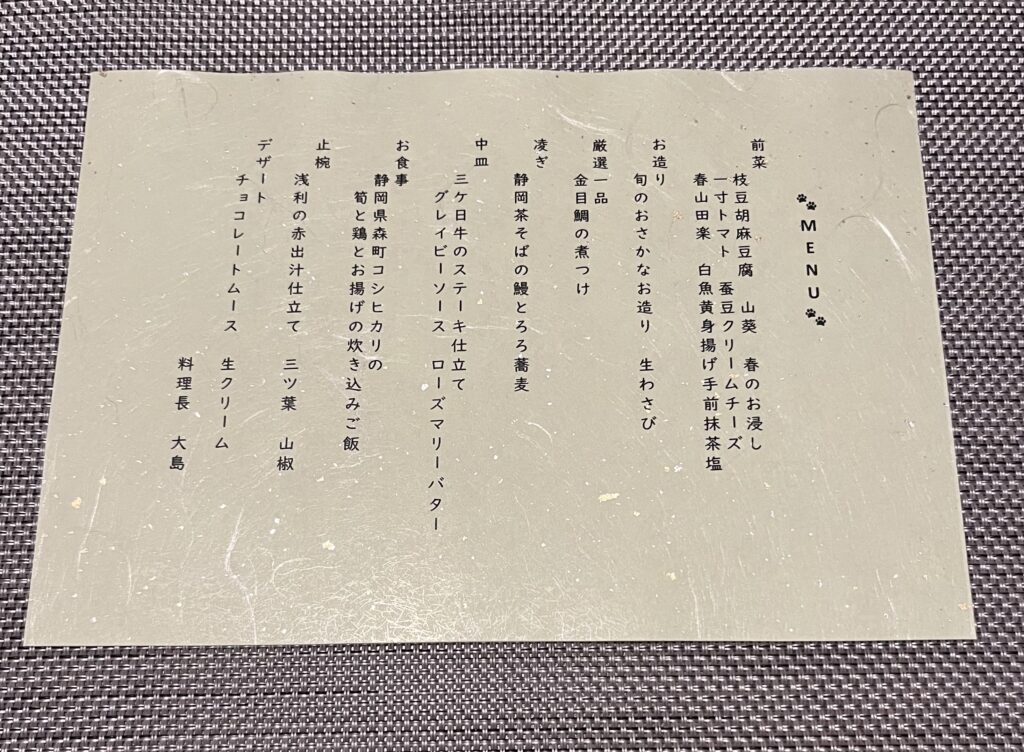 MENU
前菜
枝豆胡麻豆腐　山葵　春のお浸し
一寸トマト　蚕豆クリームチーズ
春山田楽　白魚黄身揚げ手前抹茶塩
お造り
旬のおさかなお造り　生わさび
厳選一品
金目鯛の煮つけ
凌ぎ
静岡茶そばの鰻とろろ蕎麦
中皿
三ケ日牛のステーキ仕立て
グレイビーソース　ローズマリーバター
お食事
静岡県森町コシヒカリの
筍と鶏とお揚げの炊き込みご飯
止椀
浅利の赤出汁仕立て　三ツ葉　山椒
デザート
チョコレートムース　生クリーム
料理長　大島